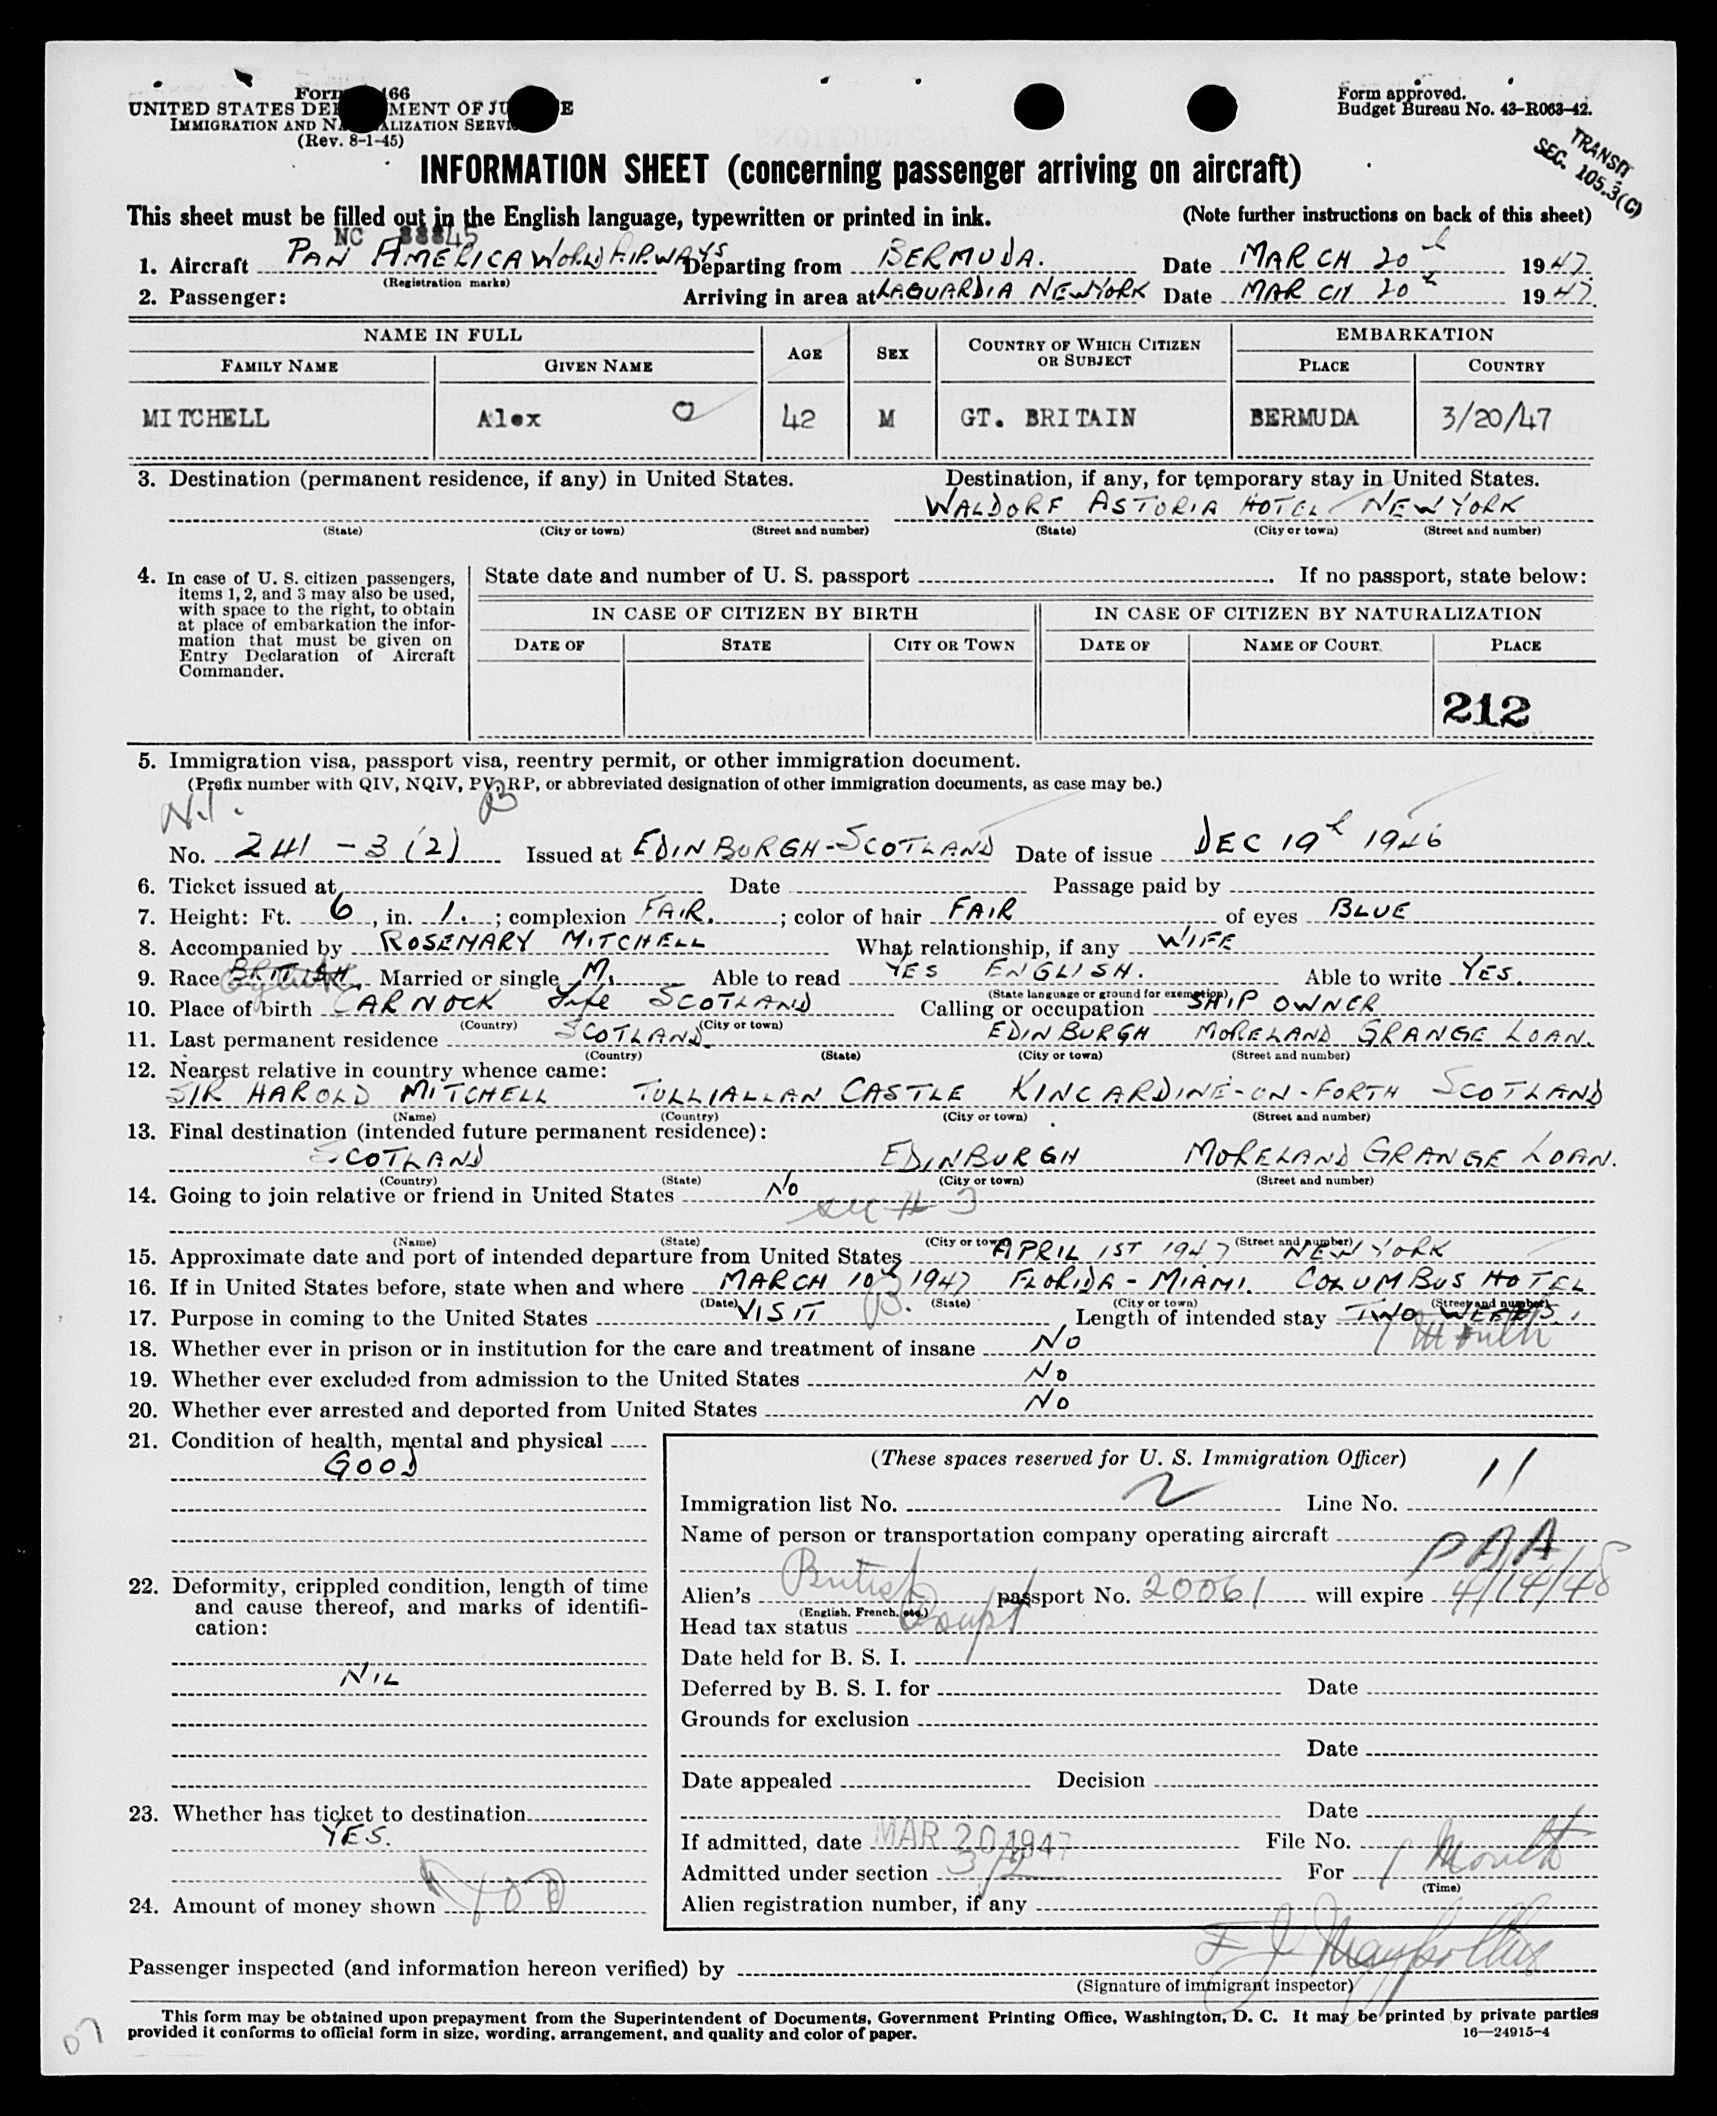 Form 466
UNITED STATES DEPARTMENT OF JUSTICE
IMMIGRATION AND NATURALIZATION SERVICE
(Rev. 8-1-45)
Form approved.
Budget Bureau No. 43-R063-42.
TRANSIT
SEC. 105.3(C)
INFORMATION SHEET (concerning passenger arriving on aircraft)
This sheet must be filled out in the English language, typewritten or printed in ink. (Note further instructions on back of this sheet)
NC 88845
1. Aircraft PAN AMERICA WORLD AIRWAYS Departing from BERMUDA. Date MARCH 20th 1947.
(Registration marks)
2. Passenger: Arriving in area at LAGUARDIA NEW YORK Date MARCH 20th 1947.
NAME IN FULL AGE SEX COUNTRY OF WHICH CITIZEN OR SUBJECT EMBARKATION
FAMILY NAME GIVEN NAME PLACE COUNTRY
MITCHELL Alex 42 M GT. BRITAIN BERMUDA 3/20/47
3. Destination (permanent residence, if any) in United States. Destination, if any, for temporary stay in United States.
WALDORF ASTORIA HOTEL NEW YORK
(State) (City or town) (Street and number) (State) (City or town) (Street and number)
4. In case of U. S. citizen passengers, items 1, 2, and 3 may also be used, with space to the right, to obtain at place of embarkation the information that must be given on Entry Declaration of Aircraft Commander.
State date and number of U. S. passport . If no passport, state below:
IN CASE OF CITIZEN BY BIRTH IN CASE OF CITIZEN BY NATURALIZATION
DATE OF STATE CITY OR TOWN DATE OF NAME OF COURT. PLACE
212
5. Immigration visa, passport visa, reentry permit, or other immigration document.
(Prefix number with QIV, NQIV, PV, RP, or abbreviated designation of other immigration documents, as case may be.)
No. 241 - 3 (2) Issued at EDINBURGH - SCOTLAND Date of issue DEC 19th 1946
6. Ticket issued at Date Passage paid by
7. Height: Ft. 6, in. 1. ; complexion FAIR. ; color of hair FAIR of eyes BLUE
8. Accompanied by ROSEMARY MITCHELL What relationship, if any WIFE
9. Race BRITISH Married or single M. Able to read YES ENGLISH. Able to write YES.
(State language or ground for exemption)
10. Place of birth CARNOCK Fife SCOTLAND Calling or occupation SHIP OWNER
(Country) (City or town)
11. Last permanent residence SCOTLAND. EDINBURGH MORELAND GRANGE LOAN.
(Country) (State) (City or town) (Street and number)
12. Nearest relative in country whence came:
SIR HAROLD MITCHELL TULLIALLAN CASTLE KINCARDINE-ON-FORTH SCOTLAND
(Name) (Country) (City or town) (Street and number)
13. Final destination (intended future permanent residence):
SCOTLAND EDINBURGH MORELAND GRANGE LOAN.
(Country) (State) (City or town) (Street and number)
14. Going to join relative or friend in United States NO
see # 3
(Name) (State) (City or town) (Street and number)
15. Approximate date and port of intended departure from United States APRIL 1ST 1947 NEW YORK
16. If in United States before, state when and where MARCH 10th 1947 FLORIDA - MIAMI. COLUMBUS HOTEL
(Date) (State) (City or town) (Street and number)
17. Purpose in coming to the United States VISIT Length of intended stay TWO WEEKS.
1 Month
18. Whether ever in prison or in institution for the care and treatment of insane NO
19. Whether ever excluded from admission to the United States NO
20. Whether ever arrested and deported from United States NO
21. Condition of health, mental and physical
GOOD
22. Deformity, crippled condition, length of time and cause thereof, and marks of identification:
NIL
23. Whether has ticket to destination
YES.
24. Amount of money shown 400
(These spaces reserved for U. S. Immigration Officer)
Immigration list No. 2 Line No. 11
Name of person or transportation company operating aircraft
PAA
Alien's British passport No. 20061 will expire 4/14/48
(English, French, etc.)
Head tax status Exempt
Date held for B. S. I.
Deferred by B. S. I. for Date
Grounds for exclusion
Date
Date appealed Decision
Date
If admitted, date MAR 20 1947 File No.
Admitted under section 3/2 For 1 Month
(Time)
Alien registration number, if any
Passenger inspected (and information hereon verified) by
(Signature of immigrant inspector)
This form may be obtained upon prepayment from the Superintendent of Documents, Government Printing Office, Washington, D. C. It may be printed by private parties
provided it conforms to official form in size, wording, arrangement, and quality and color of paper.
16—24915-4